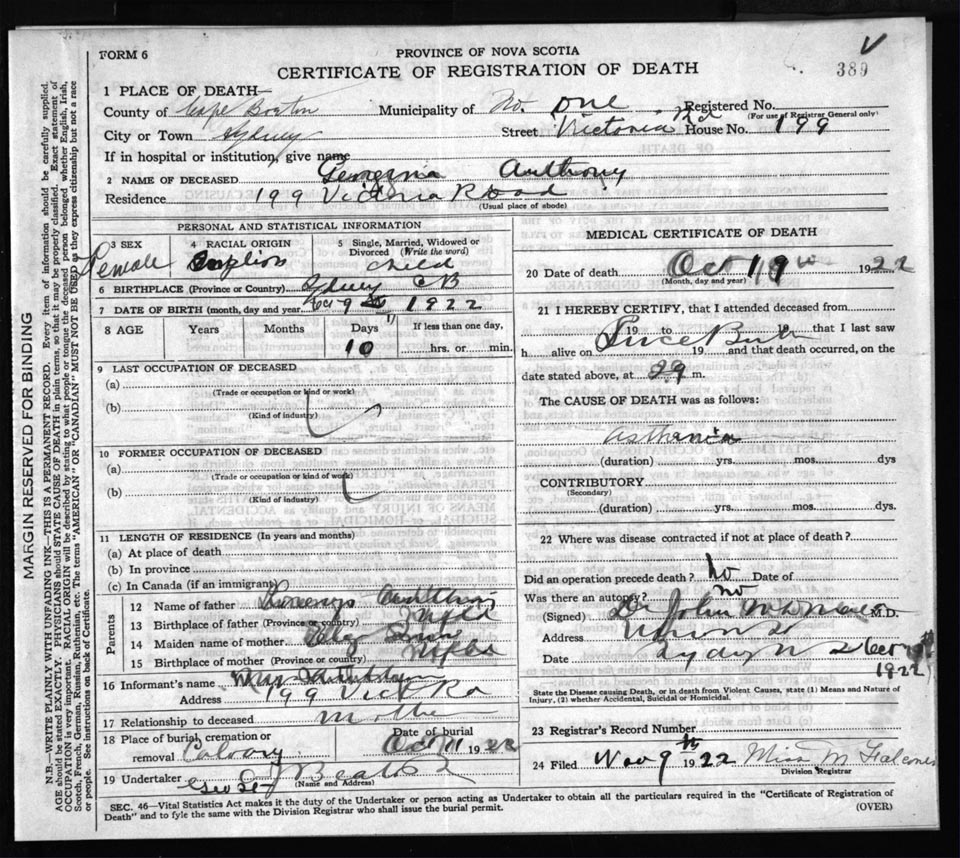 FORM 6
PROVINCE OF NOVA SCOTIA
CERTIFICATE OF REGISTRATION OF DEATH
389
1 PLACE OF DEATH—
County of Cape Breton Municipality of No. one Registered No.
(For use of Registrar General only)
City or Town Sydney Street Victoria Rd House No. 199
If in hospital or institution, give name
2 NAME OF DECEASED Georgina Anthony
Residence 199 Victoria Road
(Usual place of abode)
PERSONAL AND STATISTICAL INFORMATION
3 SEX 4 RACIAL ORIGIN 5 Single, Married, Widowed or Divorced (Write the word)
Female English child
6 BIRTHPLACE (Province or Country) Sydney CB
7 DATE OF BIRTH (month, day and year) 9 1922
8 AGE Years Months Days If less than one day,
10 hrs. or min.
9 LAST OCCUPATION OF DECEASED
(a)
(Trade or occupation or kind or work)
(b)
(Kind of industry)
10 FORMER OCCUPATION OF DECEASED
(a)
(Trade or occupation or kind of work)
(b)
(Kind of industry)
11 LENGTH OF RESIDENCE (In years and months)
(a) At place of death
(b) In province
(c) In Canada (if an immigrant)
Parents
12 Name of father Anthony
13 Birthplace of father (Province or country) Nfld
14 Maiden name of mother
15 Birthplace of mother (Province or country) Nfld
16 Informant's name Mrs Anthony
Address 199 Vict Rd
17 Relationship to deceased mother
18 Place of burial, cremation or removal Calvary Date of burial Oct 1922
19 Undertaker Beaton
(Name and Address)
MEDICAL CERTIFICATE OF DEATH
20 Date of death Oct 19 1922
(Month, day and year)
21 I HEREBY CERTIFY, that I attended deceased from
Since Birth 19 to that I last saw
h alive on 19 and that death occurred, on the
date stated above, at m.
The CAUSE OF DEATH was as follows:
asthenia
(duration) yrs. mos. dys
CONTRIBUTORY
(Secondary)
(duration) yrs. mos. dys.
22 Where was disease contracted if not at place of death?
Did an operation precede death? no Date of
Was there an autopsy? no
(Signed) Dr John M.D.
Address Union St
Sydney
Date 1922
State the Disease causing Death, or in death from Violent Causes, state (1) Means and Nature of
Injury, (2) whether Accidental, Suicidal or Homicidal.
23 Registrar's Record Number
24 Filed Nov 9th 1922 Miss M Falconer
Division Registrar
SEC. 46—Vital Statistics Act makes it the duty of the Undertaker or person acting as Undertaker to obtain all the particulars required in the "Certificate of Registration of
Death" and to fyle the same with the Division Registrar who shall issue the burial permit. (OVER)
MARGIN RESERVED FOR BINDING
N.B.—WRITE PLAINLY WITH UNFADING INK—THIS IS A PERMANENT RECORD. Every item of information should be carefully supplied.
AGE should be stated EXACTLY. PHYSICIANS should STATE CAUSE OF DEATH in plain terms, so that it may be properly classified. Exact statement of
OCCUPATION is very important. RACIAL ORIGIN will be described by stating to what people or tongue the deceased person belonged whether English, Irish,
Scotch, French, German, Russian, Ruthenian, etc. The terms "AMERICAN" OR "CANADIAN" MUST NOT BE USED as they express citizenship but not a race
or people. See instructions on back of Certificate.